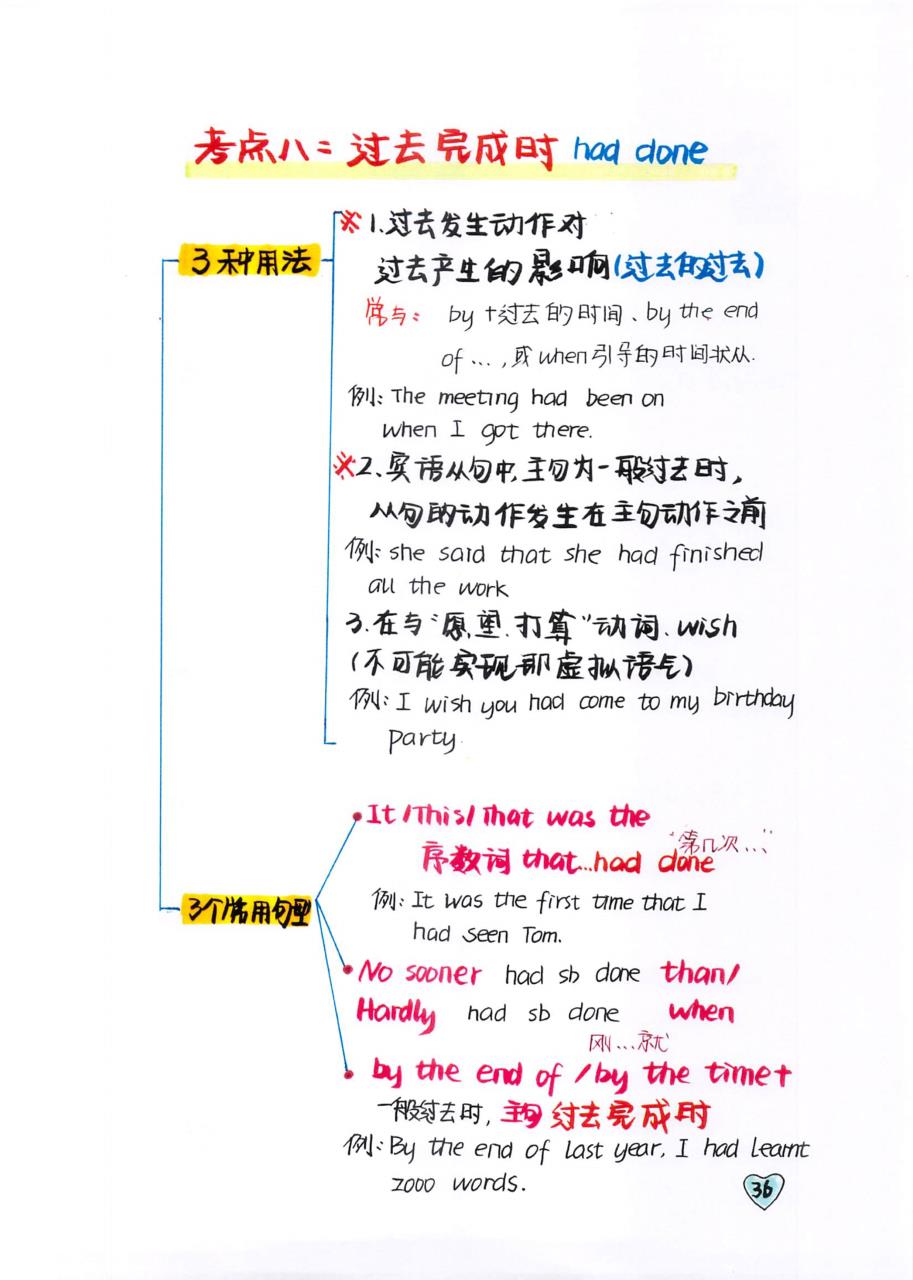 考点八：过去完成时 had done
3种用法
※1.过去发生动作对
过去产生的影响(过去的过去)
常与： by +过去的时间、by the end
of …，或when引导的时间状从.
例：The meeting had been on
when I got there.
※2、宾语从句中，主句为一般过去时，
从句的动作发生在主句动作之前
例：she said that she had finished
all the work
3.在与“愿望、打算”动词、wish
(不可能实现那虚拟语气)
例：I wish you had come to my birthday
party.
3个常用句型
It/This/That was the
序数词 that…had done
“第几次…”
例：It was the first time that I
had seen Tom.
No sooner had sb done than/
Hardly had sb done when
刚…就
by the end of /by the time+
一般过去时，主句过去完成时
例：By the end of last year, I had learnt
2000 words.
36